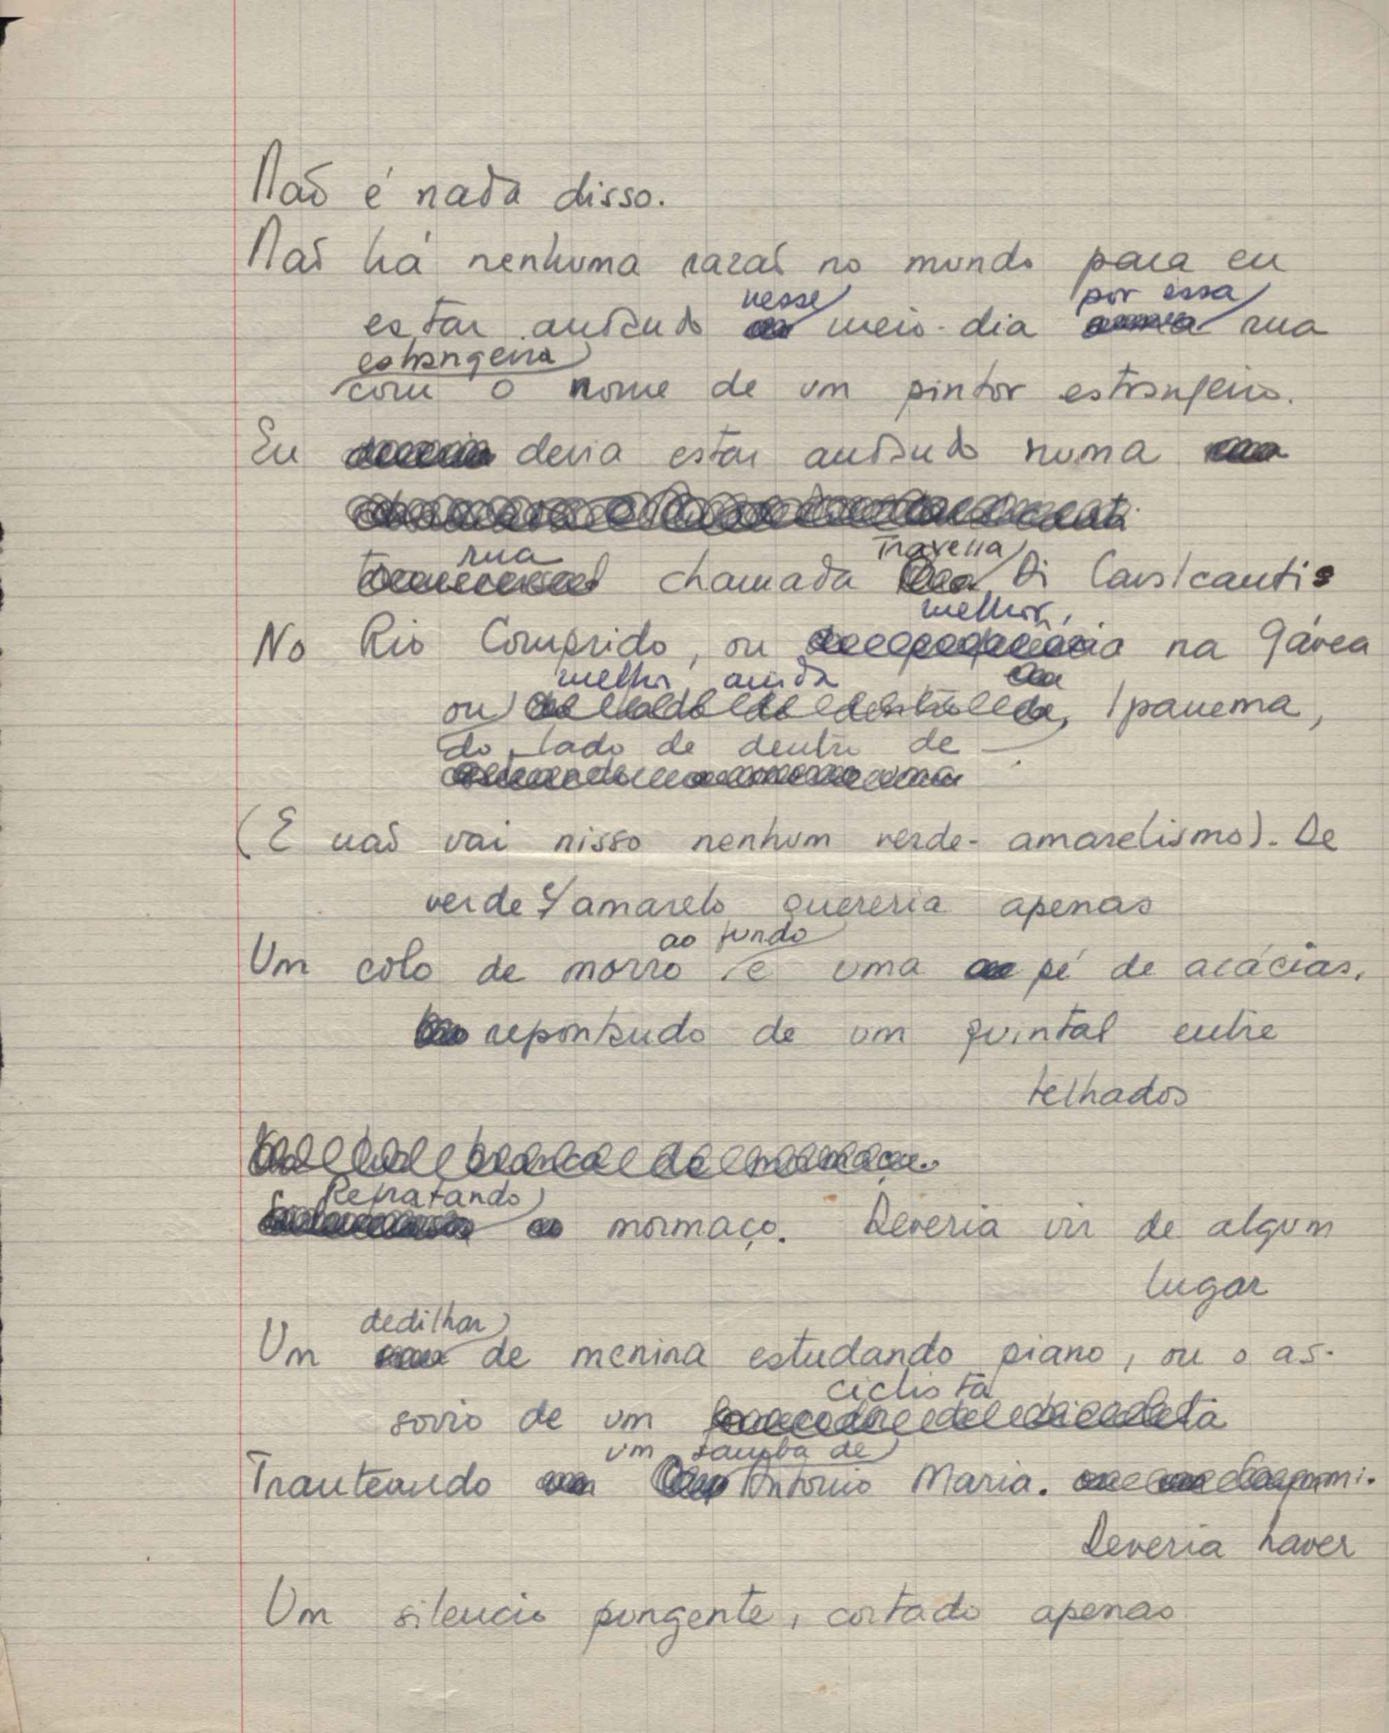 Não é nada disso.
Não há nenhuma razão no mundo para eu
nesse por essa
estar andando meio-dia rua
estrangeira
com o nome de um pintor estrangeiro.
Eu devia estar andando numa
rua Travessa
chamada Di Cavalcanti
melhor,
No Rio Comprido, ou na Gávea
melhor ainda
ou Ipanema,
do lado de dentro de
(E não vai nisso nenhum verde-amarelismo). De
verde e amarelo quereria apenas
ao fundo
Um colo de morro e uma pé de acácias,
repontando de um quintal entre
telhados
Refratando
o mormaço. Deveria vir de algum
lugar
dedilhar
Um de menina estudando piano, ou o as-
ciclista
sovio de um
um samba de
Trauteando Antonio Maria.
Deveria haver
Um silencio pungente, cortado apenas